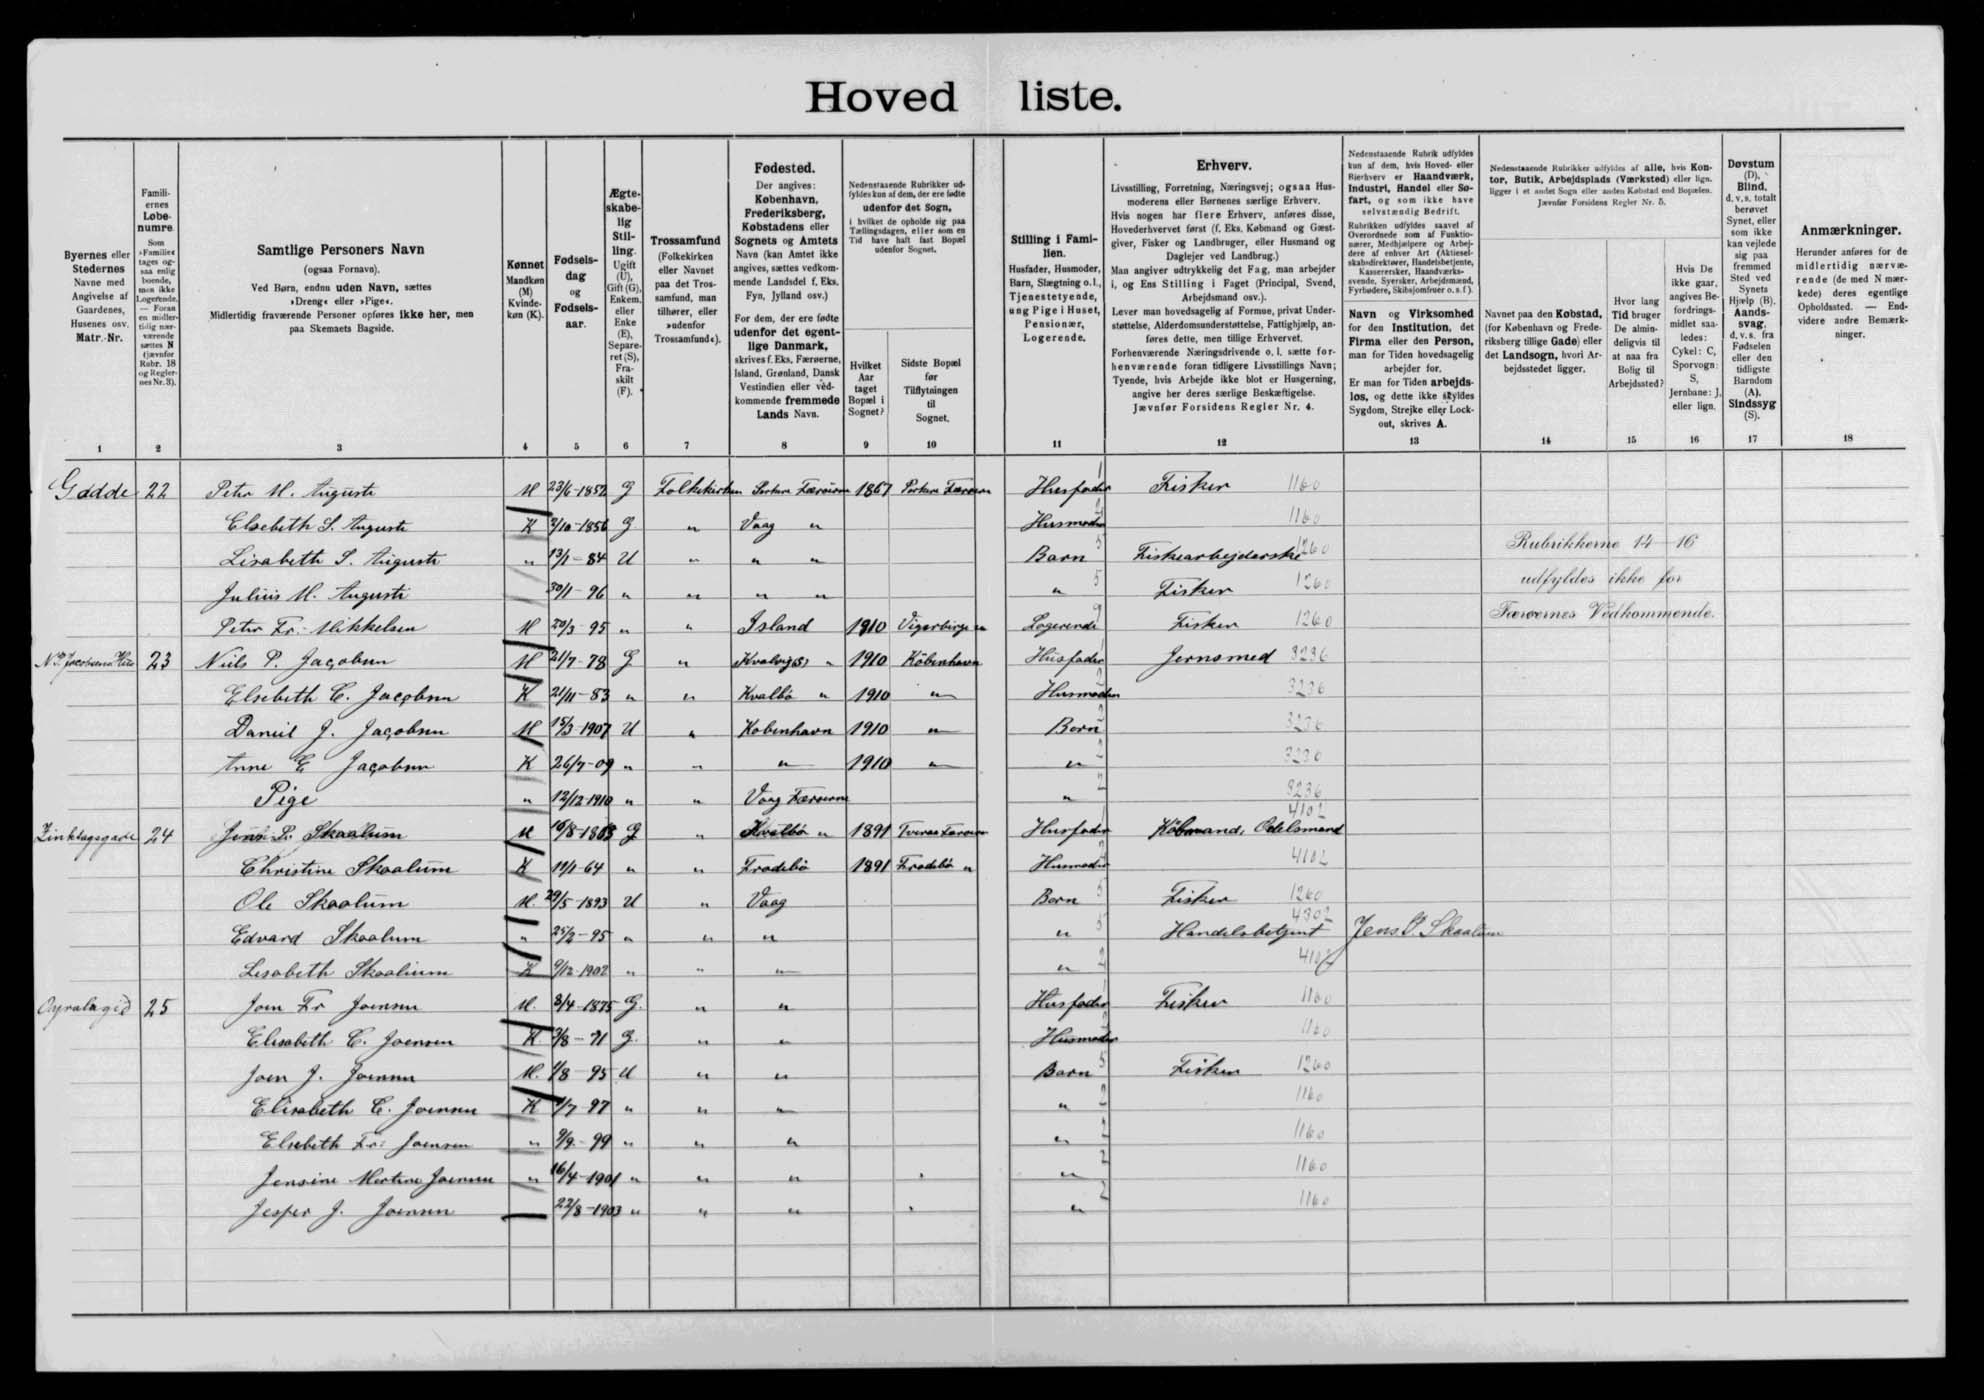 Hoved liste.
Byernes eller Stedernes Navne med Angivelse af Gaardenes, Husenes osv. Matr.-Nr.
Familiernes Løbenumre.
Som »Familie« tages ogsaa enlig boende, men ikke Logerende. — Foran en midlertidig nærværende sættes N (jævnfør Rubr. 18 og Regler nes Nr. 3).
Samtlige Personers Navn
(ogsaa Fornavn).
Ved Børn, endnu uden Navn, sættes »Dreng« eller »Pige«.
Midlertidig fraværende Personer opføres ikke her, men paa Skemaets Bagside.
Kønnet Mandkøn (M) Kvindekøn (K).
Fødselsdag og Fødselsaar.
Ægteskabelig Stilling. Ugift (U), Gift (G), Enkem. eller Enke (E), Separeret (S), Fraskilt (F).
Trossamfund (Folkekirken eller Navnet paa det Trossamfund, man tilhører, eller »udenfor Trossamfund«).
Fødested.
Der angives: København, Frederiksberg, Købstadens eller Sognets og Amtets Navn (kan Amtet ikke angives, sættes vedkommende Landsdel f. Eks. Fyn, Jylland osv.)
For dem, der ere fødte udenfor det egentlige Danmark, skrives f. Eks. Færøerne, Island, Grønland, Dansk Vestindien eller vedkommende fremmede Lands Navn.
Nedenstaaende Rubrikker udfyldes kun af dem, der ere fødte udenfor det Sogn, i hvilket de opholde sig paa Tællingsdagen, eller som en Tid have haft fast Bopæl udenfor Sognet.
Hvilket Aar taget Bopæl i Sognet?
Sidste Bopæl før Tilflytningen til Sognet.
Stilling i Familien.
Husfader, Husmoder, Barn, Slægtning o. l., Tjenestetyende, ung Pige i Huset, Pensionær, Logerende.
Erhverv.
Livsstilling, Forretning, Næringsvej; ogsaa Husmoderens eller Børnenes særlige Erhverv.
Hvis nogen har flere Erhverv, anføres disse, Hovederhvervet først (f. Eks. Købmand og Gæstgiver, Fisker og Landbruger, eller Husmand og Daglejer ved Landbrug.)
Man angiver udtrykkelig det Fag, man arbejder i, og Ens Stilling i Faget (Principal, Svend, Arbejdsmand osv.).
Lever man hovedsagelig af Formue, privat Understøttelse, Alderdomsunderstøttelse, Fattighjælp, anføres dette, men tillige Erhvervet.
Forhenværende Næringsdrivende o. l. sætte forhenværende foran tidligere Livsstillings Navn; Tyende, hvis Arbejde ikke blot er Husgerning, angive her deres særlige Beskæftigelse.
Jævnfør Forsidens Regler Nr. 4.
Nedenstaaende Rubrik udfyldes kun af dem, hvis Hoved- eller Bierhverv er Haandværk, Industri, Handel eller Søfart, og som ikke have selvstændig Bedrift.
Rubrikken udfyldes saavel af Overordnede som af Funktionærer, Medhjælpere og Arbejdere af enhver Art (Aktieselskabsdirektører, Handelsbetjente, Kasserersker, Haandværkssvende, Syersker, Arbejdsmænd, Fyrbødere, Skibsjomfruer o. s. f.).
Navn og Virksomhed for den Institution, det Firma eller den Person, man for Tiden hovedsagelig arbejder for.
Er man for Tiden arbejdsløs, og dette ikke skyldes Sygdom, Strejke eller Lockout, skrives A.
Nedenstaaende Rubrikker udfyldes af alle, hvis Kontor, Butik, Arbejdsplads (Værksted) eller lign. ligger i et andet Sogn eller anden Købstad end Bopælen.
Jævnfør Forsidens Regler Nr. 5.
Navnet paa den Købstad, (for København og Frederiksberg tillige Gade) eller det Landsogn, hvori Arbejdsstedet ligger.
Hvor lang Tid bruger De almindeligvis til at naa fra Bolig til Arbejdssted?
Hvis De ikke gaar, angives Befordringsmidlet saaledes: Cykel: C, Sporvogn: S, Jernbane: J, eller lign.
Døvstum (D), Blind, d. v. s. totalt berøvet Synet, eller som ikke kan vejlede sig paa fremmed Sted ved Synets Hjælp (B). Aandssvag, d. v. s. fra Fødselen eller den tidligste Barndom (A). Sindssyg (S).
Anmærkninger.
Herunder anføres for de midlertidig nærværende (de med N mærkede) deres egentlige Opholdssted. — Endvidere andre Bemærkninger.
1 2 3 4 5 6 7 8 9 10 11 12 13 14 15 16 17 18
Gadde 22 Peter M. Augusti M 23/6-1852 G Folkekirken Porkere Færøerne 1867 Porkere Færøerne Husfader 1 Fisker 1160
Elsebeth S. Augusti K 2/10-1856 G. " Vaag " Husmoder 2 1160
Lisabeth S. Augusti " 13/1-84 U " " " Barn 5 Fiskearbejderske 1260 Rubrikkerne 14-16
Julius M. Augusti 30/1-96 " " " " " 5 Fisker 1260 udfyldes ikke for
Peter Fr. Mikkelsen M 20/3-95 " " Island 1910 Logerende 9 Fisker 1260 Færøernes Vedkommende.
N. P. Jacobsens Hus 23 Niels P. Jacobsen M 21/7-78 G " " 1910 København Husfader 1 Jernsmed 3236
Elsebeth C. Jacobsen K 21/11-83 " " Kvalbø " 1910 " Husmoder 2 3236
Daniel J. Jacobsen M 15/3-1907 U " København 1910 " Børn 2 3236
Anne E Jacobsen K 26/7-09 " " " 1910 " " 2 3236
Pige " 12/12-1910 " " Vaag Færøerne " 2 3236
24 Jens P. Skaalum M 16/8-1863 G " Kvalbø " 1891 Tveraa Færøerne Husfader 1 Købmand, Odelsmand 4102
Christine Skaalum K 11/1-64 " " Frodebø 1891 Frodebø " Husmoder 2 4102
Ole Skaalum M. 29/5-1893 U " Vaag Børn 5 Fisker 1260
Edvard Skaalum " 25/2-95 " " " " 5 Handelsbetjent 4302 Jens P. Skaalum
Lisabeth Skaalum K 9/12-1902 " " " " 2 4102
25 Joen Fr Joensen M. 3/4-1875 G. " " Husfader 1 Fisker 1160
Elisabeth C. Joensen K. 2/8-71 G. " " Husmoder 2 1160
Joen J. Joensen M. 1/8-95 U " " Barn 5 Fisker 1260
Elisabeth C. Joensen K /7-97 " " " " 2 1160
Elsebeth Fr: Joensen " 9/9-99 " " " " 2 1160
Jensine Martine Joensen " 16/4-1901 " " " " 2 1160
Jesper J. Joensen 22/8-1903 " " " " 2 1160